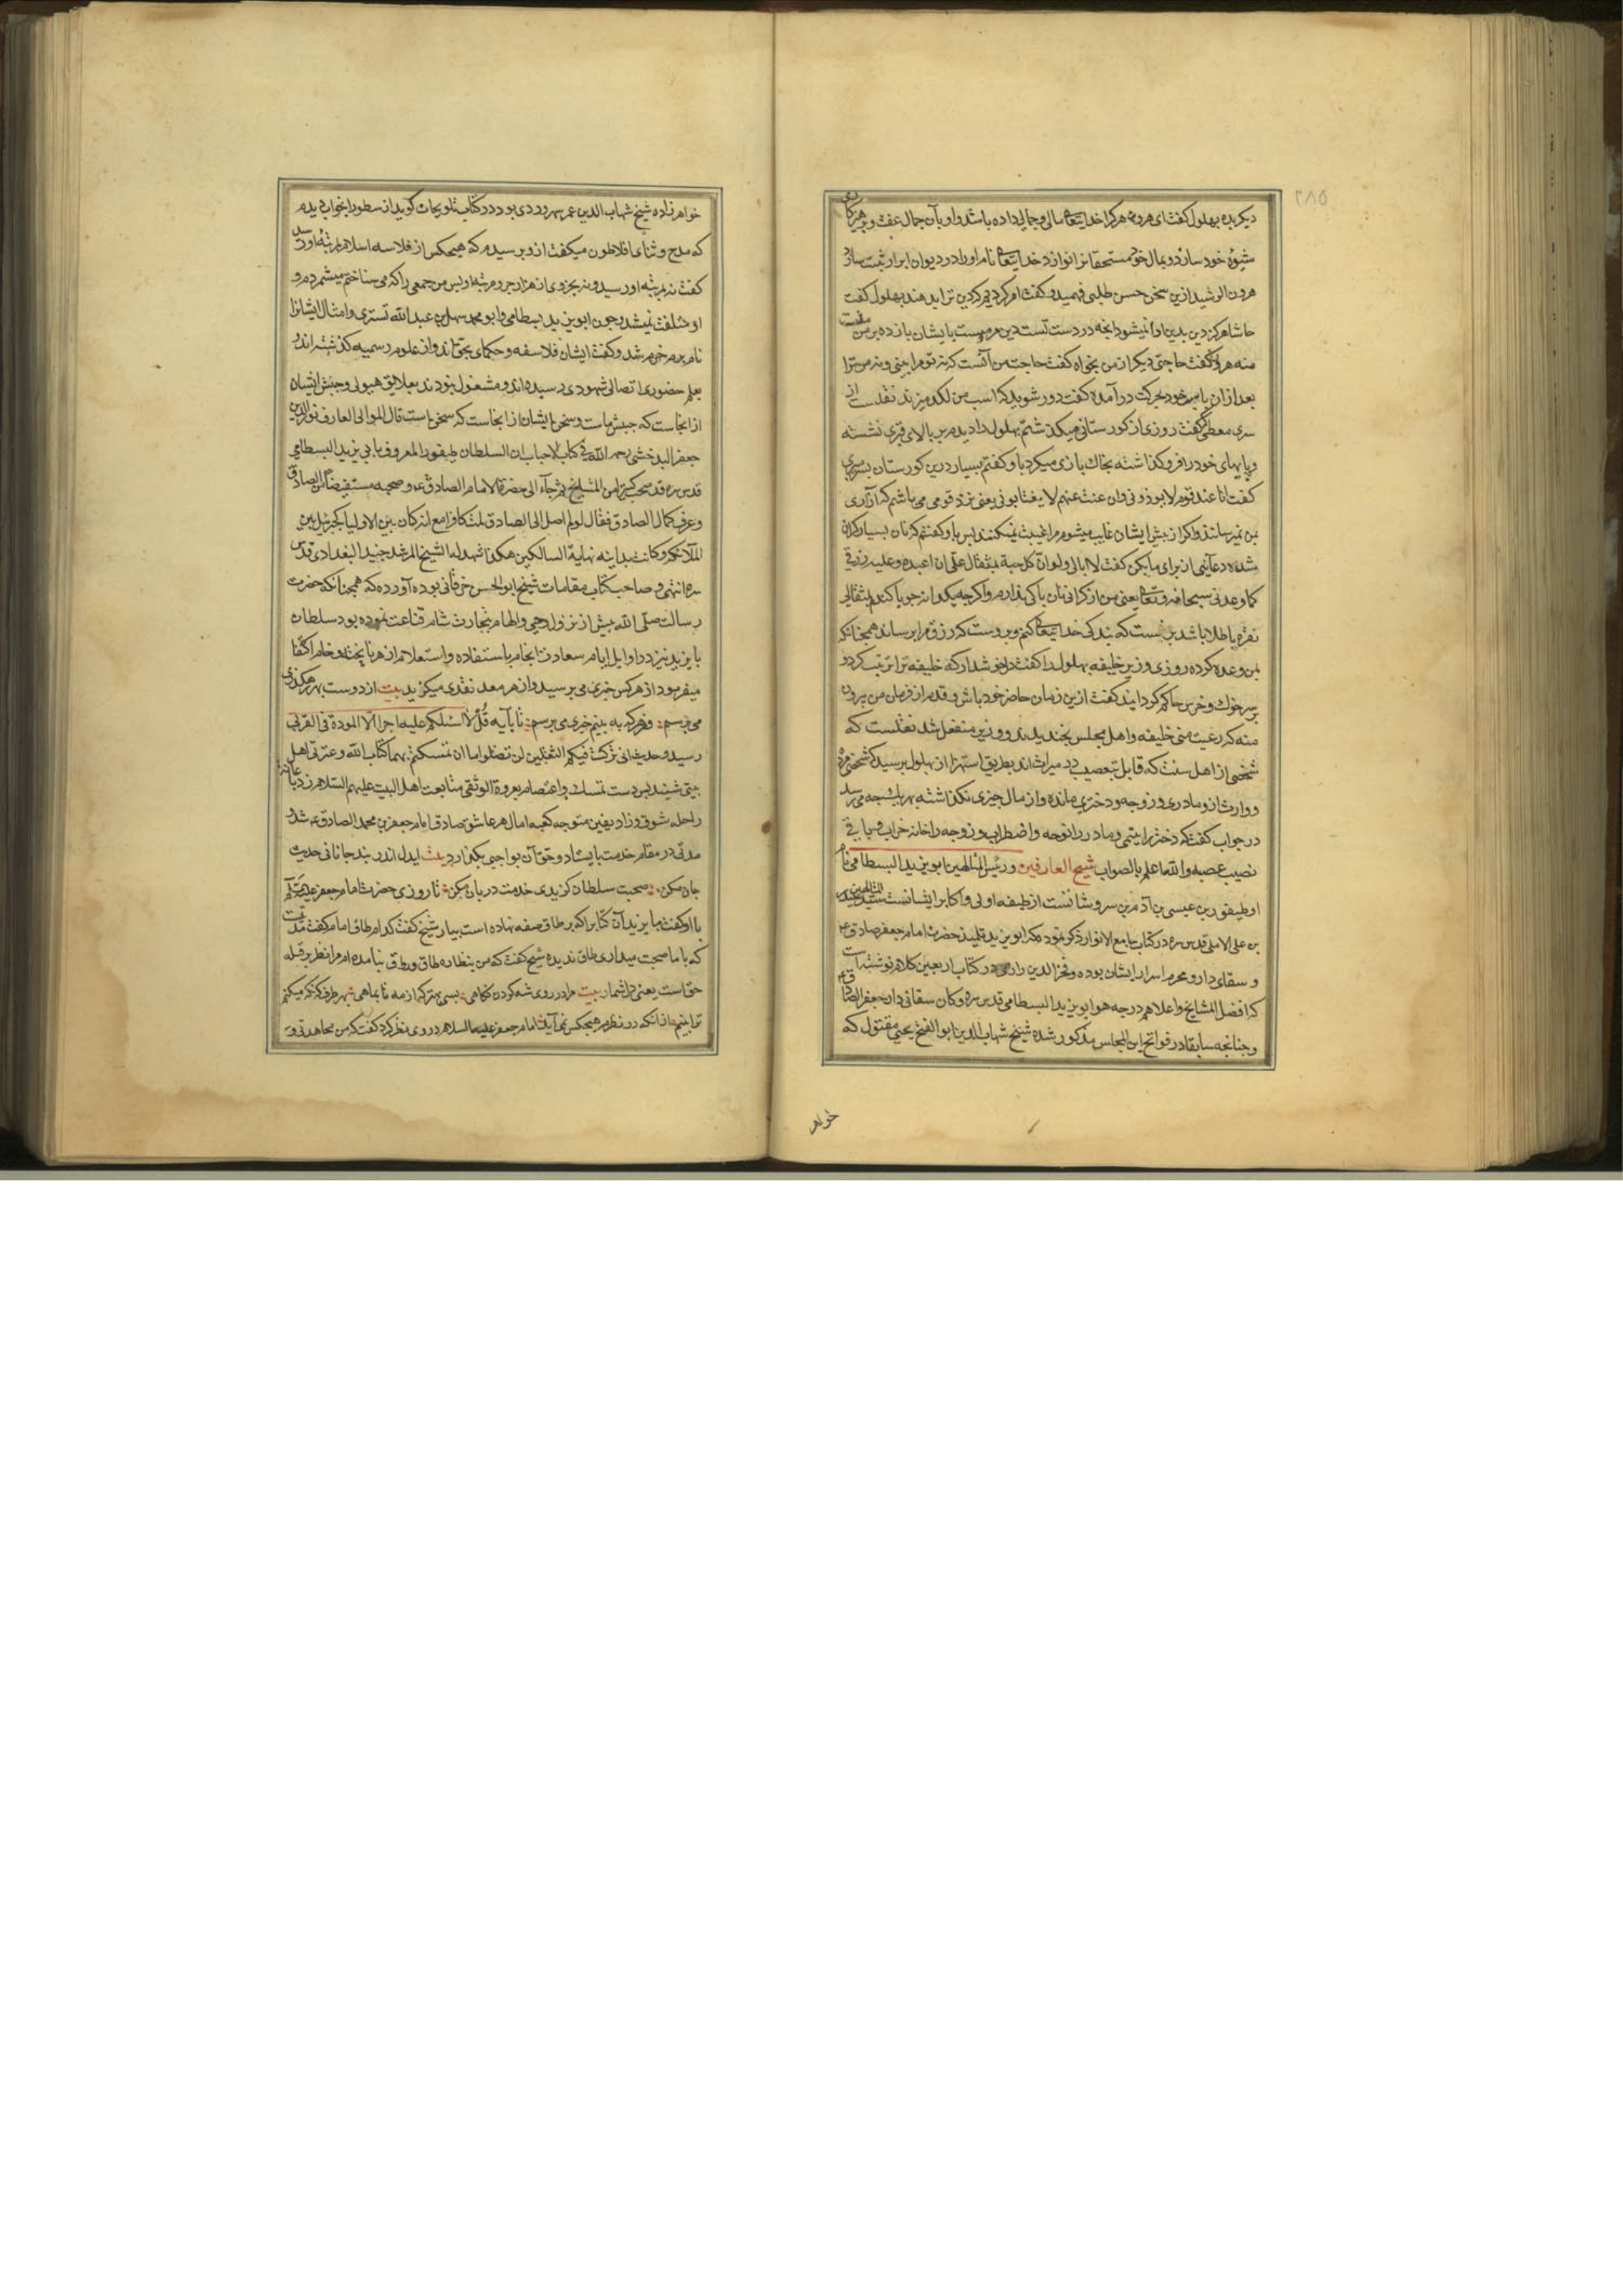 ۲۸۵
دیکر بده بهلول کفت ای هرون هرکرا خدایتعالی مالی و جمالی داده باشد و او بآن جمال عفت و پرهیزکاری
شیوهٔ خود سازد و بمال خود مستحقانرا نوازد خدایتعالی نام او را در دیوان ابرار ثبت سازد
هرون الرشید ازین سخن حسن طلبی فهمید و کفت امر کردیم که دین ترا بدهند بهلول کفت
حاشا هرکز دین بدین ادا نمیشود آنچه در دست تست دین مردمست بایشان باز ده بر من منت
منه هرون کفت حاجتی دیکر از من بخواه کفت حاجت من آنست که نه تو مرا بینی و نه من ترا
بعد ازان با خود بحرکت در آمده کفت دور شوید که اسب من لکد میزند نقلست از
سری سقطی کفت روزی از کورستانی میکذشتم بهلول را دیدم بر بالای قبری نشسته
و پایهای خود را فروکذاشته بخاک بازی میکرد باو کفتم بسیار درین کورستان بسر میبری
کفت انا عند قوم لا یوذونی وان غبت عنهم لا یغتابونی یعنی نزد قومی می باشم که آزاری
بمن نمیرسانند و اکر از پیش ایشان غایب میشوم مرا غیبت نمیکنند پس باو کفتم که نان بسیار کران
شده دعائی از برای ما بکن کفت لا ابالی ولو ان کل حبة بمثقال علی ان اعبده و علیه رزقی
کما وعدنی سبحانه و تعالی یعنی من از کرانی نان باکی ندارم و اکرچه یکدانه جو یا کندم بمثقالی
نقره یا طلا باشد بر منست که بندکی خدایتعالی کنم و بر وست که رزق مرا برساند همچنانکه
بمن وعده کرده روزی وزیر خلیفه بهلول را کفت دل خوش دار که خلیفه ترا ترتیب کرد و
بر سر خوک و خرس حاکم کردانید کفت ازین زمان حاضر خود باش و قدم از فرمان من بیرون
منه که رعیت منی خلیفه و اهل مجلس بخندیدند و وزیر منفعل شد نقلست که
شخصی از اهل سنت که قابل تعصیب در میراث اند بطریق استهزا از بهلول پرسید که شخصی مرده
و وارث ازو مادری و زوجه و دختری مانده و از مال چیزی نکذاشته بهر یک چه میرسد
در جواب کفت که دختر را یتیمی و مادر را نوحه و اضطراب و زوجه را خانه خراب و باقی
نصیب عصبه والله اعلم بالصواب شیخ العارفین و رئیس المتالهین ابویزید البسطامی نام
او طیفور بن عیسی بن آدم بن سروشانست از طبقه اولی و اکابر ایشانست سید المتالهین حیدر
بن علی الاملی قدس سره در کتاب جامع الانوار ذکر نموده که ابویزید تلمیذ حضرت امام جعفر صادق ع م
و سقای دار و محرم اسرار ایشان بوده و فخر الدین رازی در کتاب اربعین کلام نوشته است
که افضل المشایخ و اعلاهم درجه هو ابویزید البسطامی قدس سره و کان سقاء فی دار جعفر الصادق ع م
و چنانچه سابقا در فواتح این المجالس مذکور شده شیخ شهاب الدین ابوالفتح یحیی مقتول که
خواهر
خواهر زاده شیخ شهاب الدین عمر سهروردی بود در کتاب تلویحات کوید ارسطو را بخواب دیدم
که مدح و ثنای افلاطون میکفت ازو پرسیدم که هیچکس از فلاسفه اسلام بمرتبهٔ او رسد
کفت نه بمرتبه او رسید و نه بجزوی از هزار جزو مرتبه او پس من جمعی را که می شناختم میشمردم و
او ملتفت نمیشد و چون ابویزید بسطامی و ابو محمد سهل بن عبد الله تستری و امثال ایشانرا
نام بردم خرم شد و کفت ایشان فلاسفه و حکمای بحق اند و از علوم رسمیه کذشته اند و
بعلم حضوری اتصالی شهودی رسیده اند و مشغول نبودند بعلایق هیولی و جنبش ایشان
از انجاست که جنبش ماست و سخن ایشان از انجاست که سخن ماست قال الموالی العارف نور الدین
جعفر البدخشی رحمه الله فی کتاب الاحباب ان السلطان طیفور المعروف بابی یزید البسطامی
قدس سره قد صحب کثیرا من المشایخ ثم جاء الی حضرة الامام الصادق ع م و صحبه مستفیضا من الصادق
و عرف کمال الصادق فقال لو لم اصل الی الصادق لمت کافرا مع انه کان بین الاولیا کجبرئیل بین
الملائکه و کانت بدایته نهایة السالکین هکذا شهد له الشیخ المرشد جنید البغدادی قدس
سره انتهی و صاحب کتاب مقامات شیخ ابوالحسن خرقانی بوده آورده که همچنانکه حضرت
رسالت صلی الله پیش از نزول وحی و الهام بتجارت شام قناعت نموده بود سلطان
بایزید نیز در اوایل ایام سعادت انجام باستفاده و استعلام از هر نا پخته و خام اکتفا
میفرمود از هرکس خبری می پرسید و از هر معدن نقدی میکزید بیت از دوست بهر رهکذری
می پرسم و ز هرکه به بینم خبری می پرسم تا بآیه قُل لا اسئلکم علیه اجرا الا المودة فی القربی
رسید و حدیث انی ترکت فیکم الثقلین لن تضلوا ما ان تمسکتم بهما کتاب الله و عترتی اهل
بیتی شنید پس دست تمسک و اعتصام بعروة الوثقی متابعت اهل البیت علیهم السلام زد با
راحله شوق و زاد یقین متوجه کعبه آمال هر عاشق صادق امام جعفر بن محمد الصادق ع م شد و
مدتی در مقام خدمت بایستاد و حق آن بواجبی بکذارد بیت ایدل اندر بند جانانی حدیث
جان مکن صحبت سلطان کزیدی خدمت دربان مکن تا روزی حضرت امام جعفر علیه السلام
با او کفت بایزید آن کتابرا که بر طاق صفه نهاده است بیار شیخ کفت کدام طاق امام کفت مدتیست
که با ما صحبت میداری طاق ندیده شیخ کفت که من بنظاره طاق و رواق نیامده ام مرا نظر بر قبله
حق است یعنی دل شما بیت مرا در روی شه کردن نکاهی بسی بهتر که از مه تا بماهی بهر طرف که نکه میکنم
ترا بینم از آنکه در نظرم هیچکس نمی آید امام جعفر علیه السلام در وی نظر کرد کفت که من مجاهدتی و